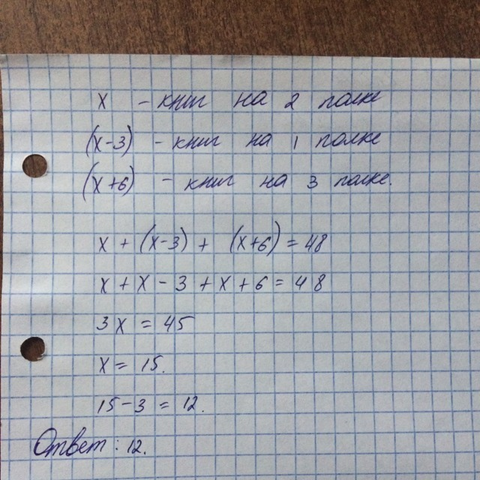 x – книг на 2 полке
(x-3) – книг на 1 полке
(x+6) – книг на 3 полке.
x + (x-3) + (x+6) = 48
x + x - 3 + x + 6 = 48
3x = 45
x = 15.
15-3 = 12.
Ответ: 12.